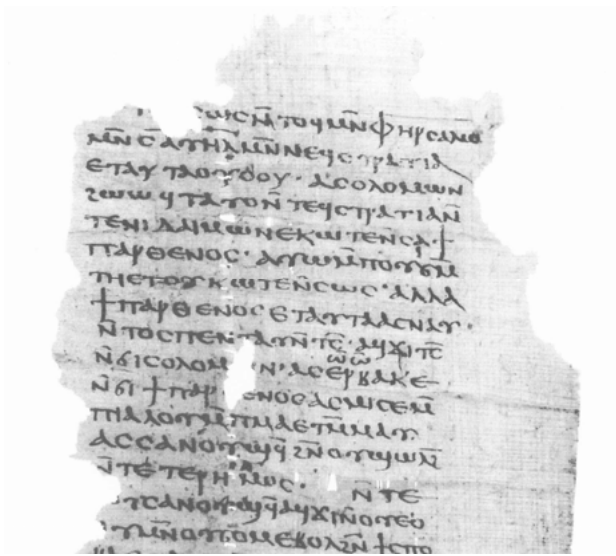 ⲱⲥⲛ̄ⲧⲟϥⲙⲛ̄ⲫⲏⲣⲥⲁⲗⲱ
ⲙⲛ̄ⲥⲁⲩⲏⲗⲙⲛ̄ⲛⲉϥⲥⲧⲣⲁⲧⲓⲁ
ⲉⲧⲁⲩⲧⲁⲟⲩⲟⲟⲩ· ⲁⲥⲟⲗⲟⲙⲱⲛ
ϩⲱⲱϥⲧⲁⲩⲟⲛ̄ⲧⲉϥⲥⲧⲣⲁⲧⲓⲁⲛ̄
ⲧⲉⲛⲓⲇⲁⲓⲙⲱⲛⲉⲕⲱⲧⲉⲛ̄ⲥⲁ·ϯ
ⲡⲁⲣⲑⲉⲛⲟⲥ· ⲁⲩⲱⲙ̄ⲡⲟⲩϭⲙ̄
ⲧⲏⲉⲧⲟⲩⲕⲱⲧⲉⲛ̄ⲥⲱⲥ· ⲁⲗⲗⲁ
ϯⲡⲁⲣⲑⲉⲛⲟⲥⲉⲧⲁⲩⲧⲁⲁⲥⲛⲁⲩ·
ⲛ̄ⲧⲟⲥⲡⲉⲛⲧⲁⲩⲛ̄ⲧⲥ̄· ⲁϥϫⲓⲧⲥ̄
ⲛ̄ϭⲓⲥⲟⲗⲟⲙⲱⲛ· ⲁⲥⲉⲣⲃⲁⲕⲉ
ⲛ̄ϭⲓϯⲡⲁⲣⲉⲛⲟⲥⲁⲥⲙⲓⲥⲉⲙ̄
ⲡⲓⲁⲗⲟⲩⲙ̄ⲡⲙⲁⲉⲧⲙ̄ⲙⲁⲩ
ⲁⲥⲥⲁⲛⲟⲩϣϥ̄ϩⲛ̄ⲟⲩϣⲱⲛ̄
ⲛ̄ⲧⲉⲧⲉⲣⲏⲙⲟⲥ· ⲛ̄ⲧⲉ
ⲩⲥⲁⲛⲟⲩϣϥ̄ⲁϥϫⲓⲛ̄ⲟⲩⲉⲟ
ⲩⲙⲛ̄ⲟⲩϭⲟⲙⲉⲃⲟⲗϩⲛ̄ϯⲥⲡⲟ